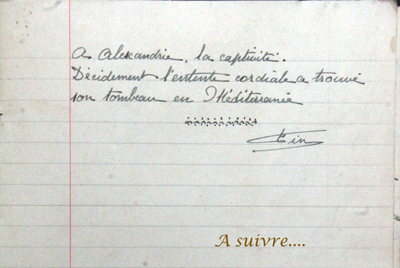 A Alexandrie, la captivité.
Décidement l'entente cordiale a trouvé
son tombeau en Méditerranie
Fin
A suivre....